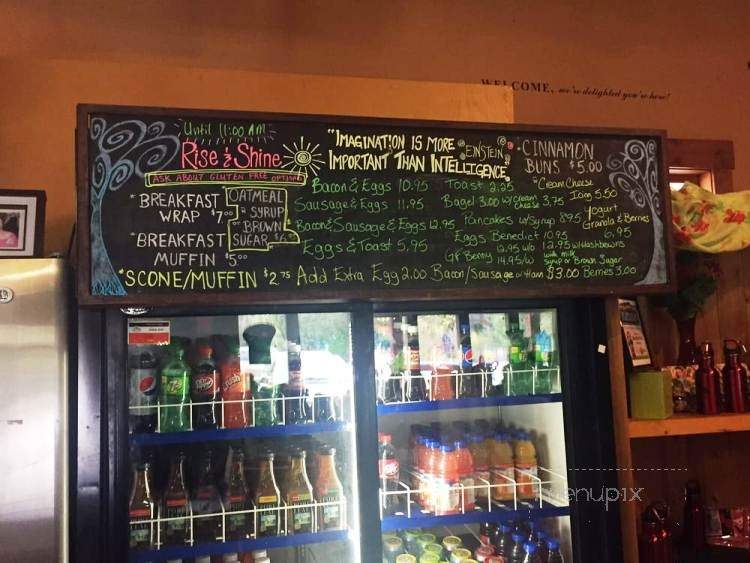 WELCOME, we're delighted you're here!
Until 11:00 AM
Rise & Shine
ASK ABOUT GLUTEN FREE OPTIONS
*BREAKFAST
WRAP $7.00
*BREAKFAST
MUFFIN $5.00
OATMEAL
SYRUP
OR BROWN
SUGAR
*SCONE/MUFFIN $2.75
"IMAGINATION IS MORE
IMPORTANT THAN INTELLIGENCE"
EINSTEIN
Bacon & Eggs 10.95
Sausage & Eggs 11.95
Bacon & Sausage & Eggs 12.95
Eggs & Toast 5.95
Toast 2.25
Bagel 3.00 w/cream cheese 3.75
Pancakes w/Syrup 8.95
Eggs Benedict 10.95
12.95 w/o 12.95 w/Hashbrowns
GF Benny 14.95/w
Add Extra Egg 2.00 Bacon/Sausage or Ham $3.00 Berries 3.00
*CINNAMON
BUNS $5.00
*Cream Cheese
Icing 5.50
Yogurt
Granola & Berries
6.95
with milk
Syrup or Brown Sugar
pepsi
Crush
menupix